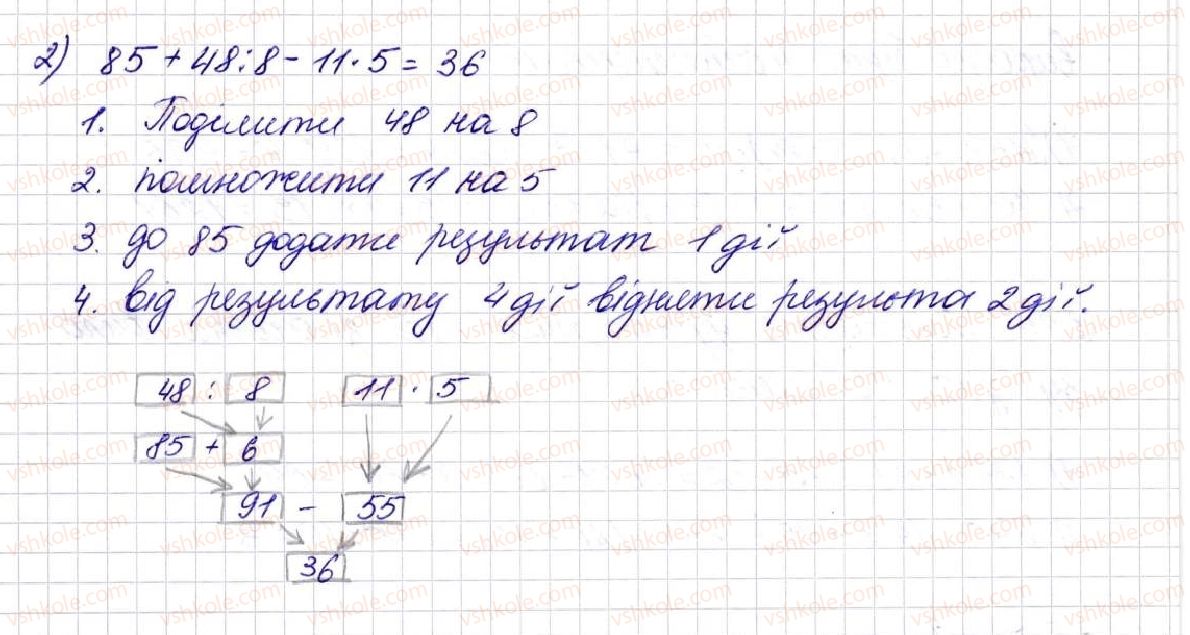 2) 85 + 48 : 8 - 11 · 5 = 36
1. Поділити 48 на 8
2. помножити 11 на 5
3. до 85 додати результат 1 дії
4. від результату 4 дії відняти результа 2 дії.
48 : 8 11 · 5
85 + 6
91 - 55
36